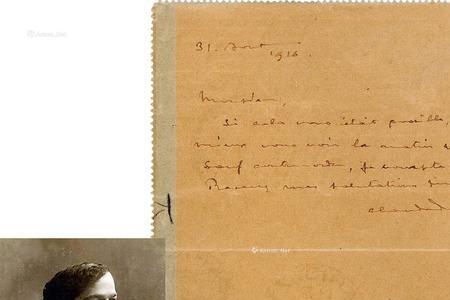 31. Août
1910.
Monsieur,
Si cela vous était possible,
mieux vous voir le matin
Sauf contre-ordre, je compte
Recevez mes salutations
Artron.Net
Artron.Net